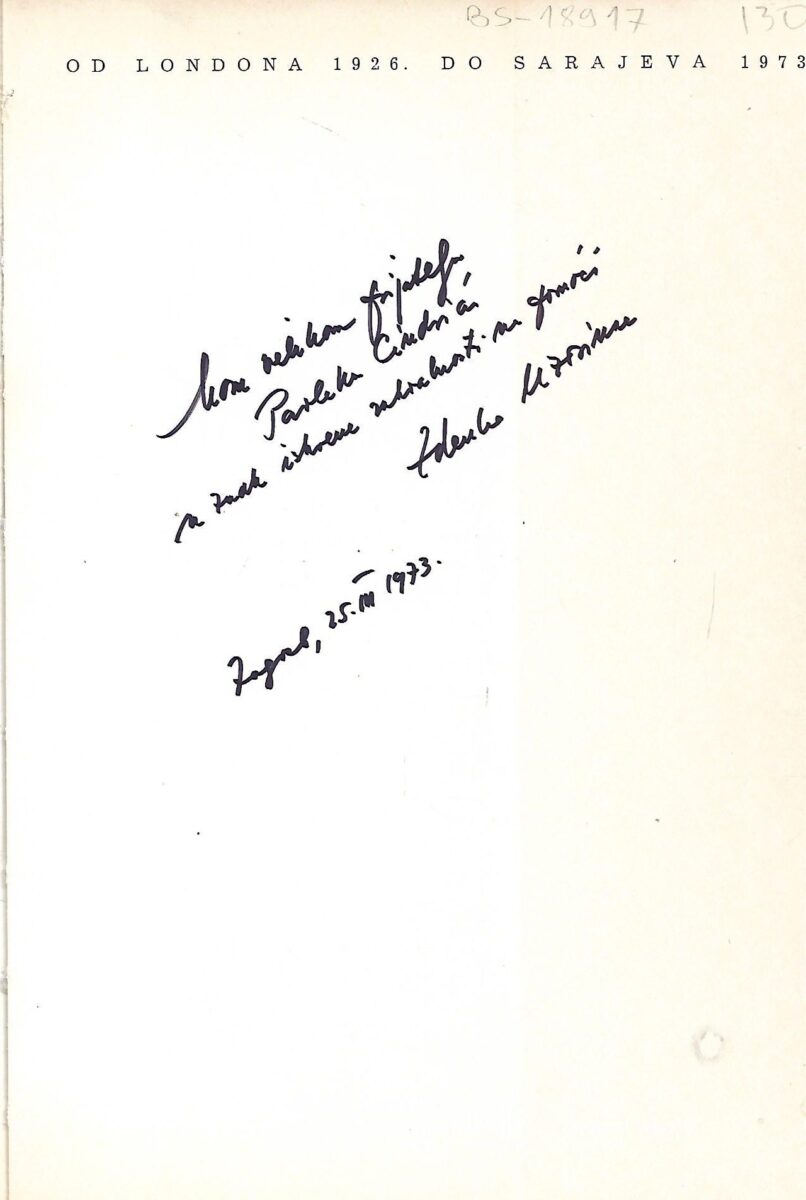 BS-18917 130
OD LONDONA 1926. DO SARAJEVA 1973
Mom velikom prijatelju,
Pavleku Cindrić
u znak iskrene zahvalnosti na pomoći
Zdenko Uzorinac
Zagreb, 25. III 1973.